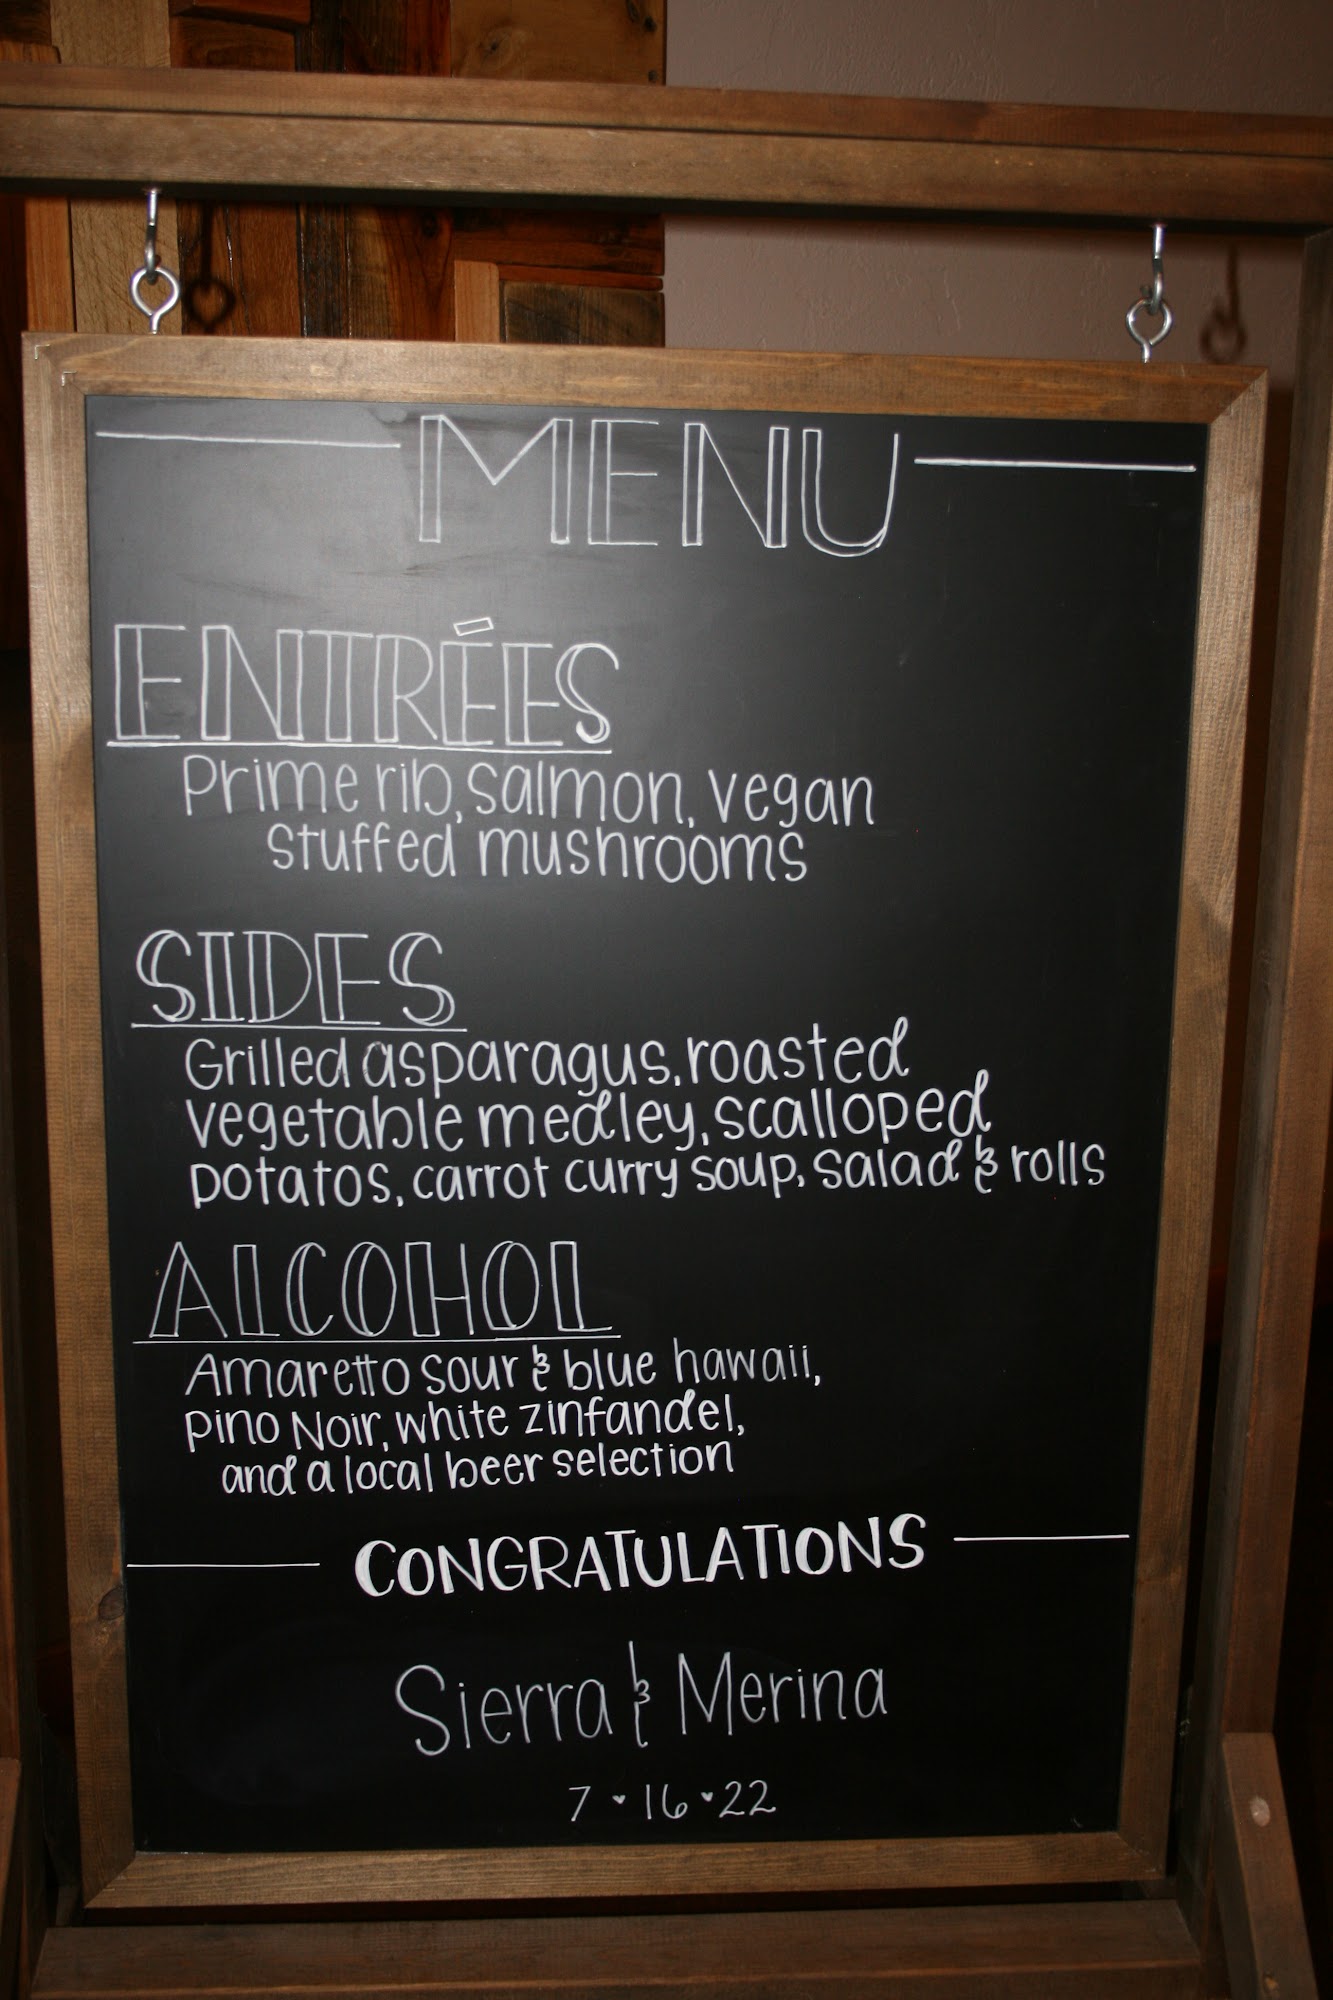 MENU
ENTRÉES
Prime rib, salmon, vegan
stuffed mushrooms
SIDES
Grilled asparagus, roasted
vegetable medley, scalloped
potatos, carrot curry soup, salad & rolls
ALCOHOL
Amaretto sour & blue hawaii,
Pino Noir, white zinfandel,
and a local beer selection
CONGRATULATIONS
Sierra & Merina
7 ♥ 16 ♥ 22